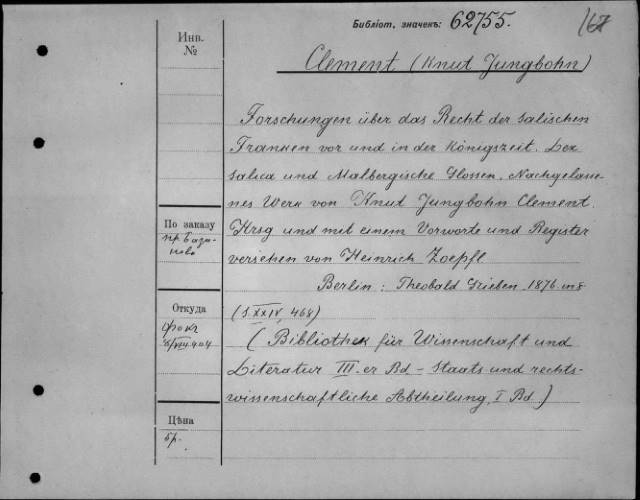 Библіот. значекъ: 62755.
167
Инв.
№
Clement (Knut Jungbohn)
Forschungen über das Recht der Salischen
Franken vor und in der Königszeit. Lex
salica und Malbergische Glossen. Nachgelasse-
nes Werk von Knut Jungbohn Clement.
Hrsg und mit einem Vorworte und Register
versehen von Heinrich Zoepfl
Berlin: Theobald Grieben. 1876. in 8
(S. XXIV, 468)
(Bibliothek für Wissenschaft und
Literatur III-er Bd - Staats-und rechts-
wissenschaftliche Abtheilung, I Bd.)
По заказу
пр. База-
нова
Откуда
Фокъ
VIII 904
Цѣна
бр.